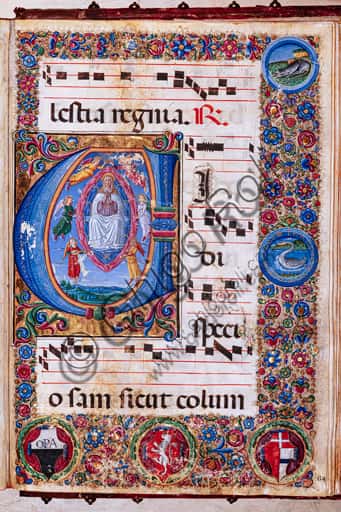 lestia regina. R.
I
di
speci
o sam sicut colum
OPA